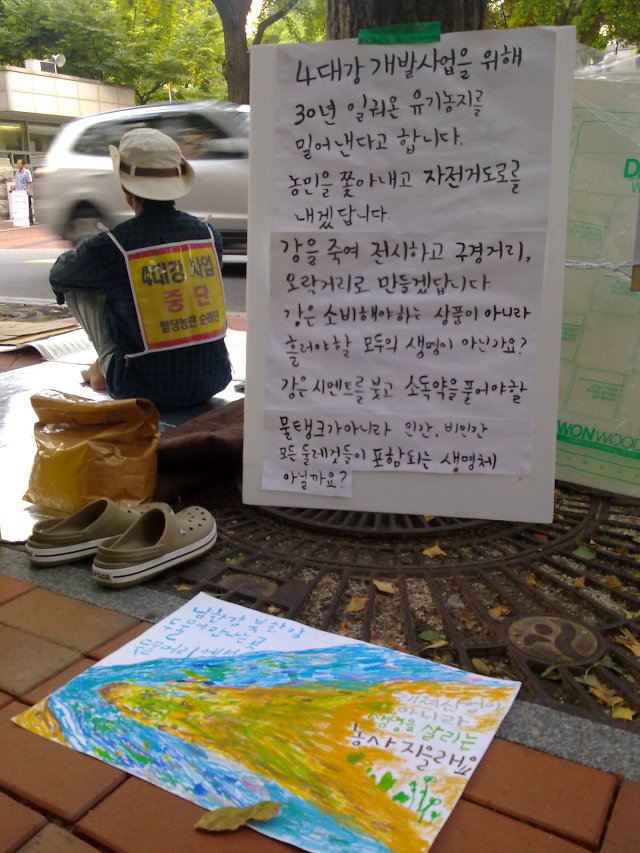 4대강 개발사업을 위해
30년 일궈온 유기농지를
밀어낸다고 합니다.
농민을 쫓아내고 자전거도로를
내겠답니다.
강을 죽여 전시하고 구경거리,
오락거리로 만들겠답니다.
강은 소비해야하는 상품이 아니라
흘러야할 모두의 생명이 아닌가요?
강은 시멘트를 붓고 소독약을 풀어야할
물탱크가아니라 인간, 비인간
모든 둘레것들이 포함되는 생명체
아닐까요?
4대강 사업
중단
팔당농민 순례단
남한강 북한강
아니라
생명을 살리는
농사 지을래요
WONWOO